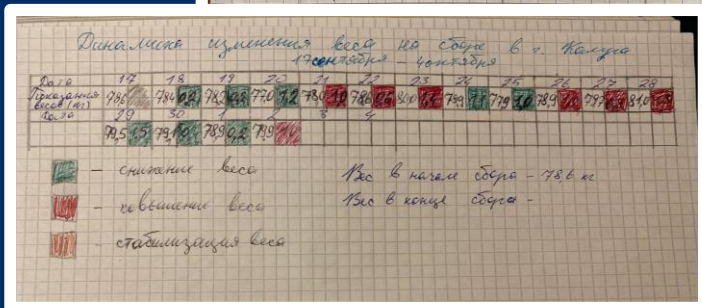 Динамика изменения веса на сборе в г. Калуга
17 сентября - 4 октября
Дата 17 18 19 20 21 22 23 24 25 26 27 28
Показания весов (кг) 78,6 78,4 0,2 78,2 0,2 77,0 1,2 78,0 1,0 78,6 0,6 79,9 1,1 77,9 1,0 78,9 1,0 81,0
Дата 29 30 1 2 3 4
79,5 1,5 79,1 78,9 0,2 79,9 1,0
- снижение веса
- повышение веса
- стабилизация веса
Вес в начале сбора - 78,6 кг
Вес в конце сбора -